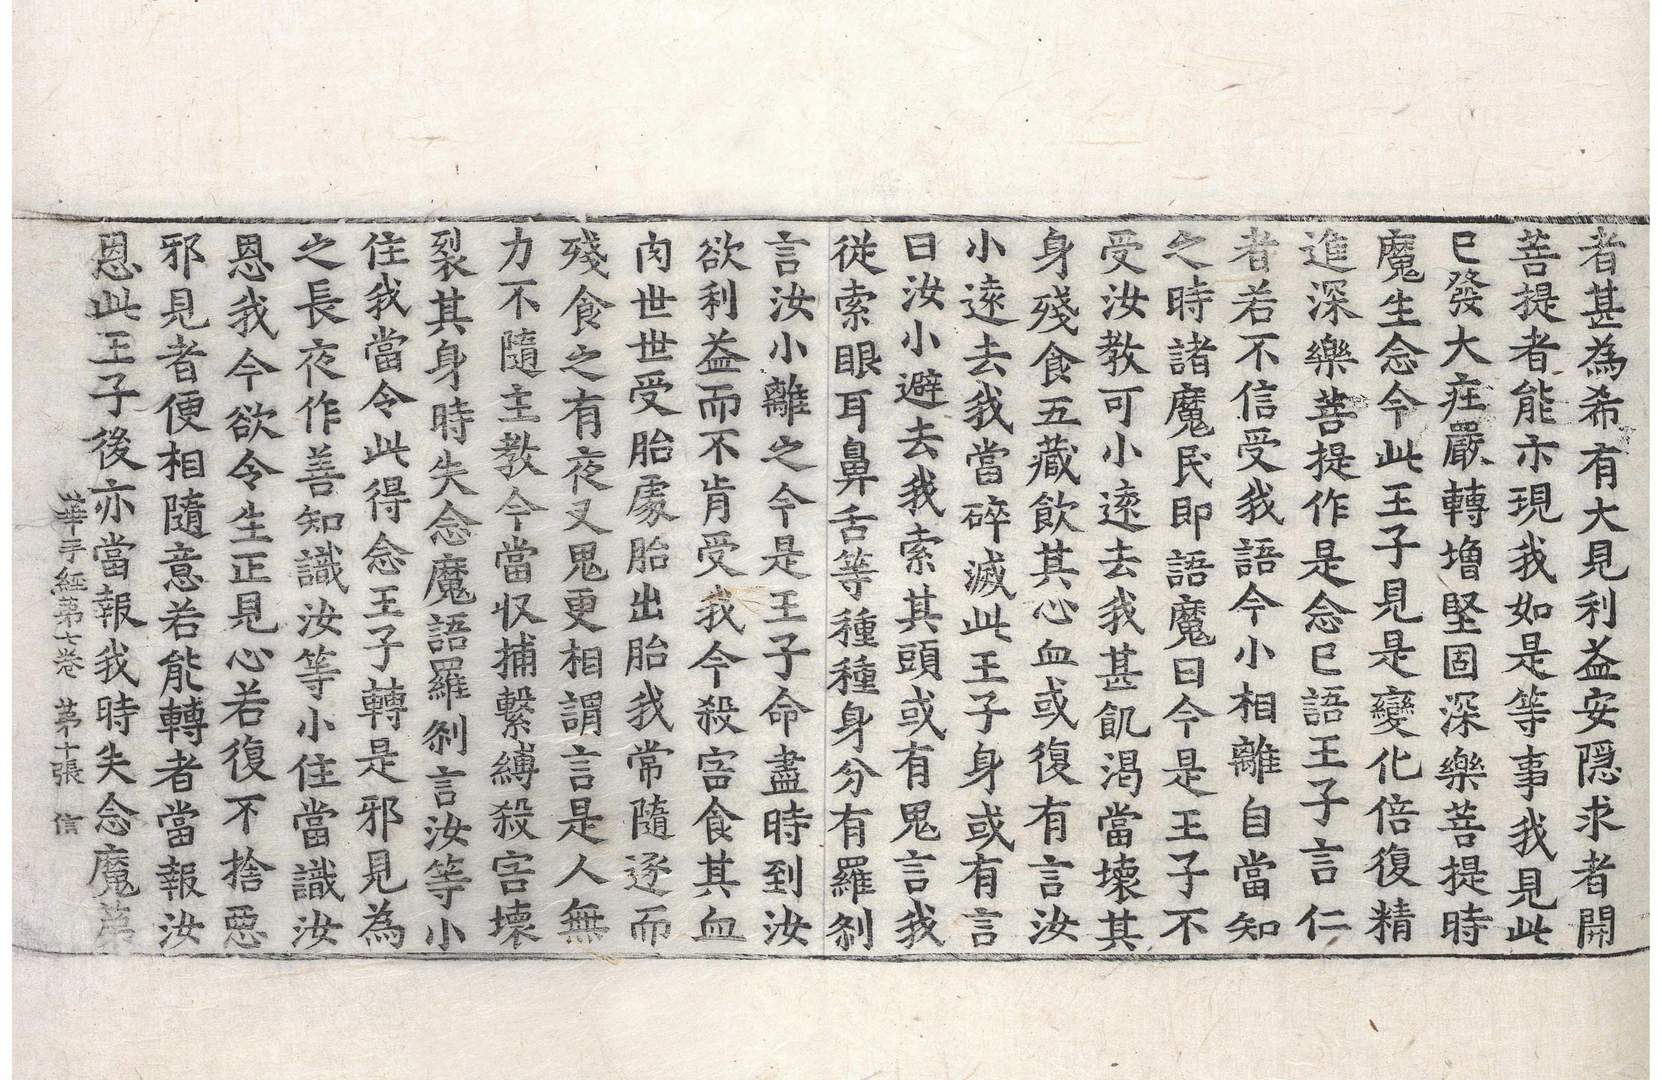 者甚為希有大見利益安隠求者開
菩提者能示現我如是等事我見此
已發大疘嚴轉増堅固深樂菩提時
魔生念今此王子見是變化倍復精
進深樂菩提作是念已語王子言仁
者若不信受我語今小相離自當知
之時諸魔民即語魔曰今是王子不
受汝教可小遠去我甚飢渴當壊其
身殘食五蔵飲其心血或復有言汝
小遠去我當碎滅此王子身或有言
曰汝小避去我索其頭或有鬼言我
從索眼耳鼻舌等種種身分有羅刹
言汝小離之今是王子命盡時到汝
欲利益而不肯受我今殺害食其血
肉世世受胎處胎出胎我常隨逐而
殘食之有夜叉鬼更相謂言是人無
力不隨主教今當収捕繫縛殺害壊
裂其身時失念魔語羅刹言汝等小
住我當令此得念王子轉是邪見為
之長夜作善知識汝等小住當識汝
恩我今欲令生正見心若復不捨惡
邪見者便相隨意若能轉者當報汝
恩此王子後亦當報我時失念魔第
華手經第七卷　第十張　信